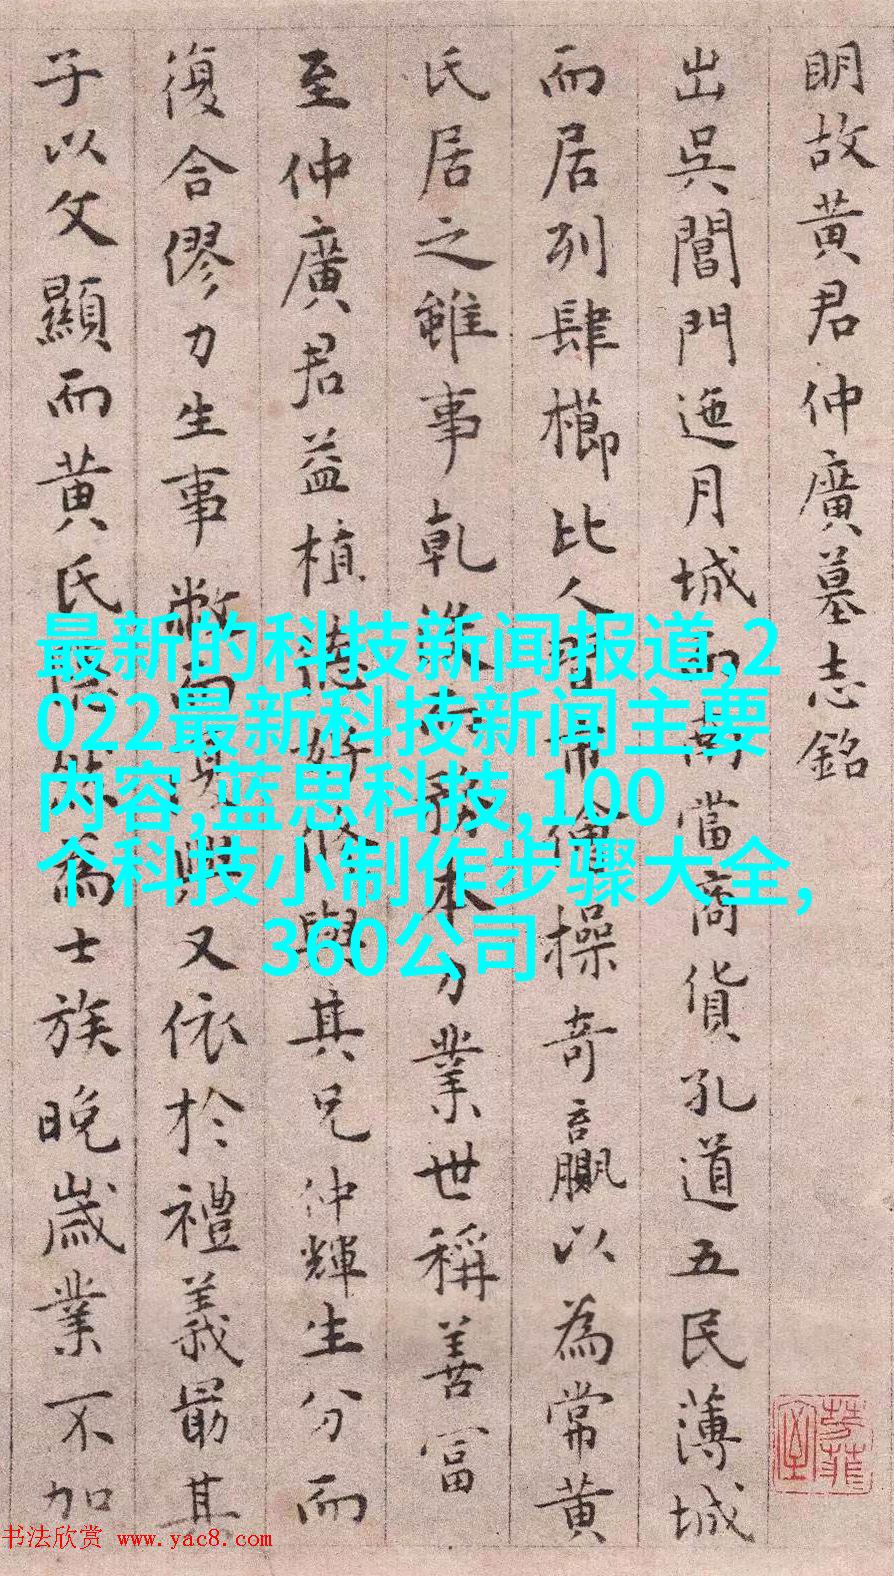 明故黄君仲廣墓志銘
出吳閶門迤月城而南當商貨孔道五民薄城
而居列肆櫛比人習市儈操奇贏以為常黄
氏居之雖事乾沒而務本力業世稱善富
至仲廣君益植德好脩與其兄仲輝生分而
復合僇力生事敝而更興又依於禮義最其
子以文顯而黄氏為士族晚歲業不加
最新的科技新闻报道,2
022最新科技新闻主要
内容,蓝思科技,100
个科技小制作步骤大全,
360公司
书法欣赏 www.yac8.com